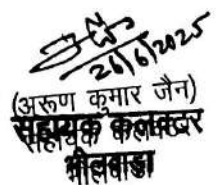 26/6/2025
(अरूण कुमार जैन)
सहायक कलक्टर
भीलवाडा